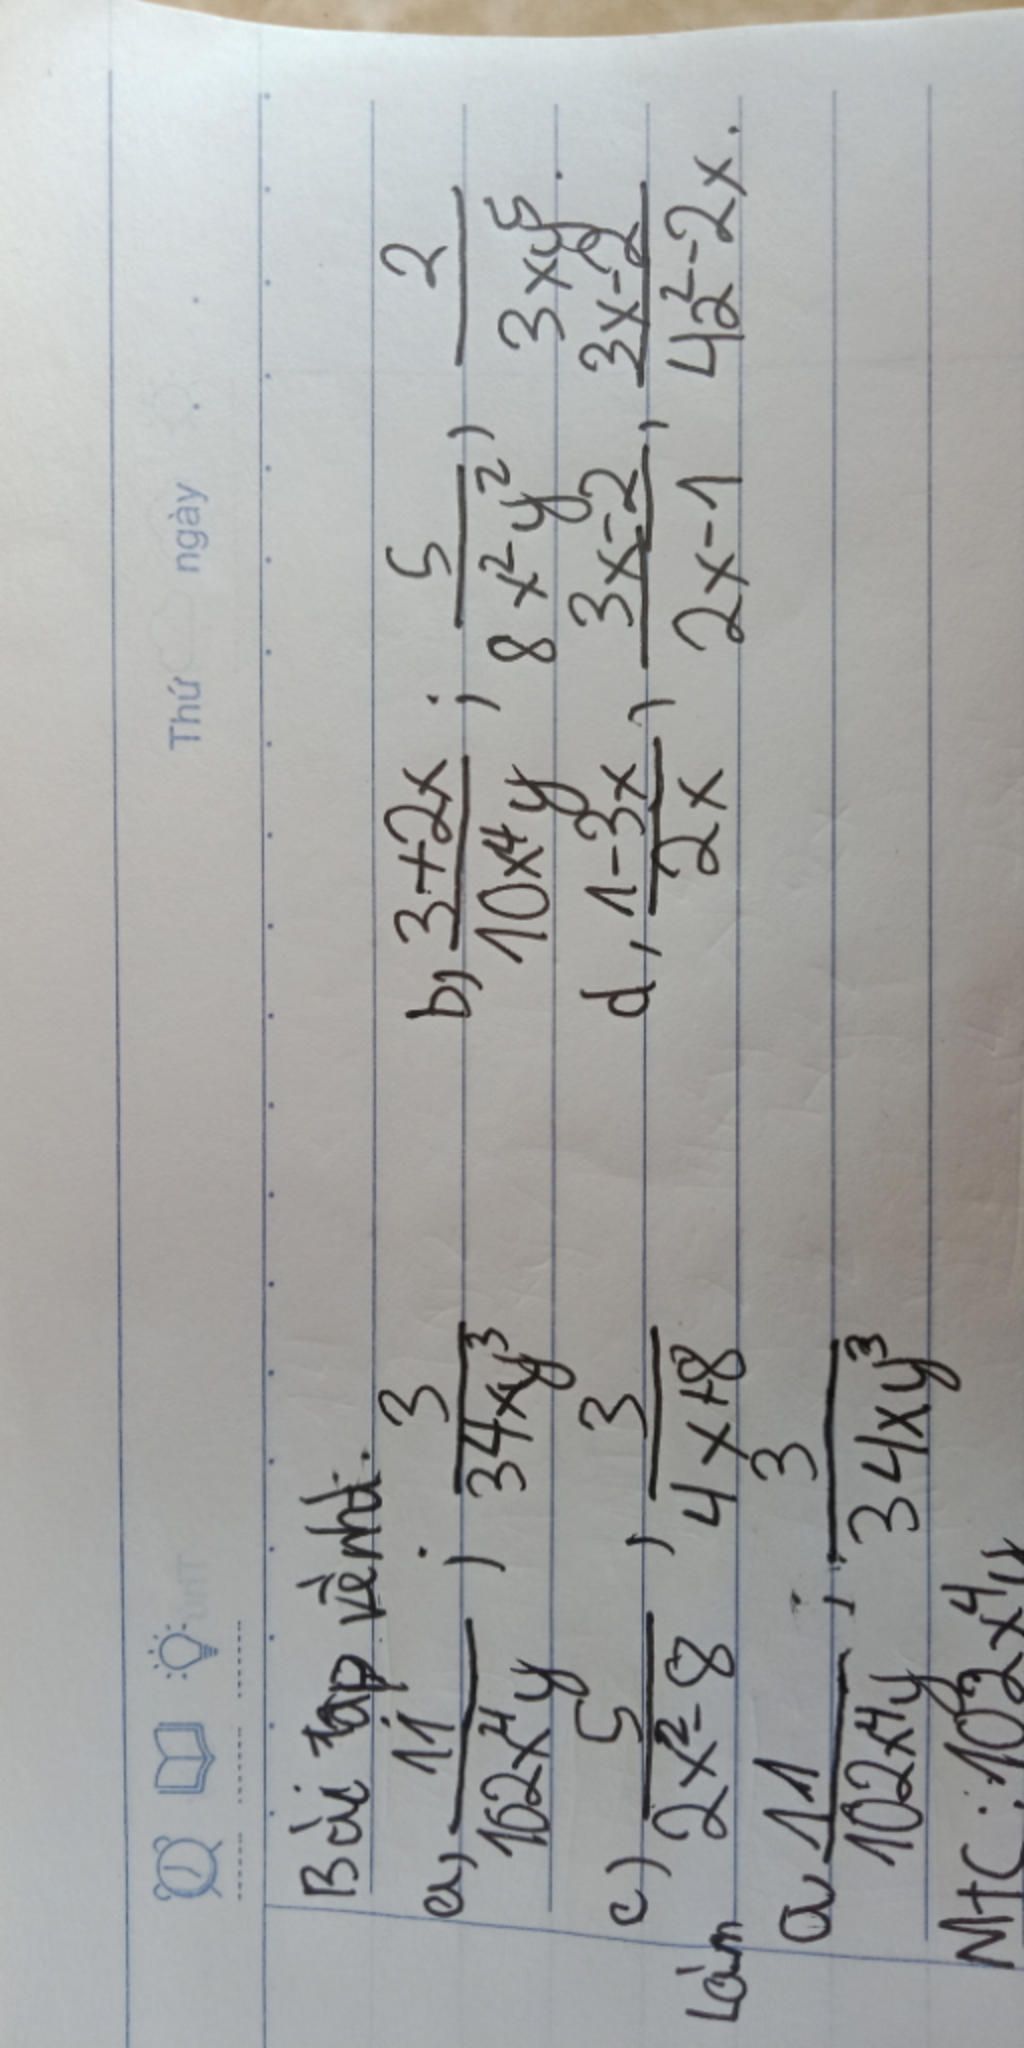 Thứ ngày
Bài tập về nhà.
a) 11/102x⁴y ; 3/34xy³ b) 3+2x/10x⁴y ; 5/8x²y² , 2/3xy⁵.
c) 5/2x²-8 , 3/4x+8 d, 1-3x/2x , 3x-2/2x-1 , 3x-2/42²-2x.
Làm
a, 11/102x⁴y ; 3/34xy³
MTC: 102x⁴y